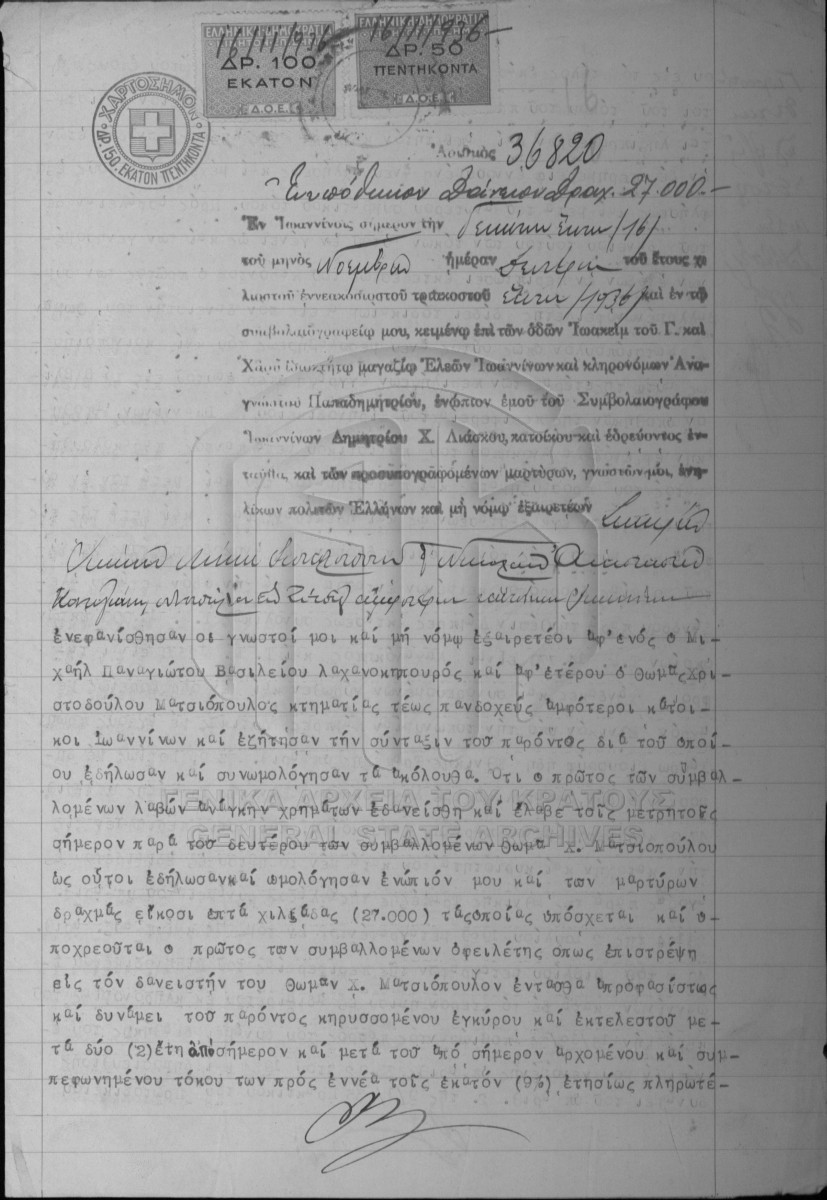 ΕΛΛΗΝΙΚΗ ΔΗΜΟΚΡΑΤΙΑ
16/11/1936
ΔΡ. 100
ΕΚΑΤΟΝ
Δ.Ο.Ε.
16/11/1936
ΔΡ. 50
ΠΕΝΤΗΚΟΝΤΑ
Δ.Ο.Ε.
ΧΑΡΤΟΣΗΜΟΝ
ΔΡ. 150. ΕΚΑΤΟΝ ΠΕΝΤΗΚΟΝΤΑ
Ἀριθμὸς 36820
Ἐνυπόθηκον Δάνειον Δραχ. 27.000.-
Ἐν Ἰωαννίνοις σήμερον τὴν Δεκάτην Ἕκτην /16/
τοῦ μηνὸς Νοεμβρίου ἡμέραν Δευτέραν τοῦ ἔτους χι-
λιοστοῦ ἐννεακοσιοστοῦ τριακοστοῦ Ἕκτου /1936/ καὶ ἐν τῷ
συμβολαιογραφείῳ μου, κειμένῳ ἐπὶ τῶν ὁδῶν Ἰωακεὶμ τοῦ Γ. καὶ
μαγαζίῳ Ἐλεῶν Ἰωαννίνων καὶ κληρονόμων Ἀνα-
γνώστου Παπαδημητρίου, ἐνώπιον ἐμοῦ τοῦ Συμβολαιογράφου
Ἰωαννίνων Δημητρίου Χ. Λιάσκου, κατοίκου καὶ ἑδρεύοντος ἐν-
ταῦθα, καὶ τῶν προσυπογραφομένων μαρτύρων, γνωστῶν μοι, ἐνη-
λίκων πολιτῶν Ἑλλήνων καὶ μὴ νόμῳ ἐξαιρετέων
ἐνεφανίσθησαν οἱ γνωστοί μοι καί μή νόμῳ ἐξαιρετέοι ἀφ'ενός ο Μι-
χαήλ Παναγιώτου Βασιλείου λαχανοκηπουρός καί ἀφ'ετέρου ὁ Θωμᾶς Χρι-
στοδούλου Ματσιόπουλος κτηματίας τέως πανδοχεύς ἀμφότεροι κάτοι-
κοι Ιωαννίνων καί ἐζήτησαν τήν σύνταξιν τοῦ παρόντος διά τοῦ ὁποί-
ου ἐδήλωσαν καί συνωμολόγησαν τά ἀκόλουθα. Οτι ο πρῶτος τῶν συμβαλ-
λομένων λαβών ἀνάγκην χρημάτων ἐδανείσθη καί ἔλαβε τοῖς μετρητοῖς
σήμερον παρά τοῦ δευτέρου τῶν συμβαλλομένων Θωμᾶ Χ. Ματσιοπούλου
ὡς οὗτοι ἐδήλωσαν καί ὡμολόγησαν ἐνώπιόν μου καί των μαρτύρων
δραχμάς εἴκοσι ἑπτά χιλιάδας (27.000) τάς οποίας υπόσχεται καί ὑ-
ποχρεοῦται ο πρῶτος των συμβαλλομένων ὀφειλέτης ὅπως ἐπιστρέψη
εἰς τόν δανειστήν του Θωμᾶν Χ. Ματσιόπουλον ἐνταῦθα ἀπροφασίστως
καί δυνάμει τοῦ παρόντος κηρυσσομένου ἐγκύρου καί ἐκτελεστοῦ με-
τά δύο (2) ἔτη ἀπό σήμερον καί μετά τοῦ ἀπό σήμερον ἀρχομένου καί συμ-
πεφωνημένου τόκου των πρός ἐννέα τοῖς ἑκατόν (9%) ἐτησίως πληρωτέ-
ΓΕΝΙΚΑ ΑΡΧΕΙΑ ΤΟΥ ΚΡΑΤΟΥΣ
GENERAL STATE ARCHIVES